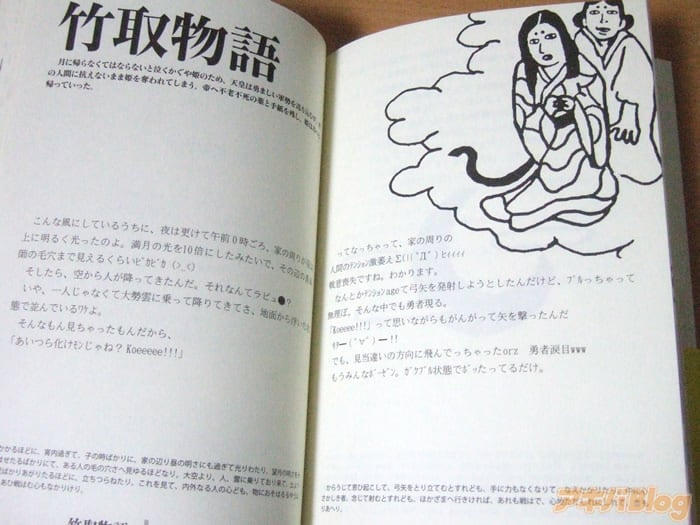 竹取物語
月に帰らなくてはならないと泣くかぐや姫のため、天皇は勇ましい軍勢を
の人間に抗えないまま姫を奪われてしまう。帝へ不老不死の薬と手紙を残し、
帰っていった。
こんな風にしているうちに、夜は更けて午前0時ごろ、家の周りが
上に明るく光ったのよ。満月の光を10倍にしたみたいで、その辺の
師の毛穴まで見えるくらいﾋﾟｶﾋﾟｶ (>_<)
そしたら、空から人が降ってきたんだ。それなんてラピュ●?
いや、一人じゃなくて大勢雲に乗って降りてきてさ、地面から
態で並んでいるﾜｹよ。
そんなもん見ちゃったもんだから、
「あいつら化けﾓﾝじゃね? Koeeeee!!!」
かかるほどに、宵内過ぎて、子の時ばかりに、家の辺り昼の明さにも過ぎて光りわたり、望月の明さを
はせたるばかりにて、ある人の毛の穴さへ見ゆるほどなり。大空より、人、雲に乗りており来て、
ばかりあがりたるほどに、立ちつらねたり。これを見て、内外なる人の心ども、物におそはるるやうに
あひ戦はむ心もなかりけり。
竹取物語
ってなっちゃって、家の周りの
人間のﾃﾝｼｮﾝ激萎え Σ(((ﾟДﾟ) ﾋｨｨｨｨ
戦意喪失ですね。わかります。
なんとかﾃﾝｼｮﾝageで弓矢を発射しようとしたんだけど、ﾌﾞﾙっちゃって
無理ぽ。そんな中でも勇者現る。
「Koeeee!!!」って思いながらもがんがって矢を撃ったんだ
ｷﾀ━(ﾟ∀ﾟ)━!!
でも、見当違いの方向に飛んでっちゃったorz　勇者涙目www
もうみんなﾎﾞｰｾﾞﾝ。ｶﾞｸﾌﾞﾙ状態でﾎﾞｯたってるだけ。
からうじて思ひ起こして、弓矢をとり立てむとすれども、手に力もなくなりて、なえかかりたり。
さかしき者、念じて射むとすれども、ほかざまへ行きければ、あれも戦はで、心
りあへり。
アキバBlog